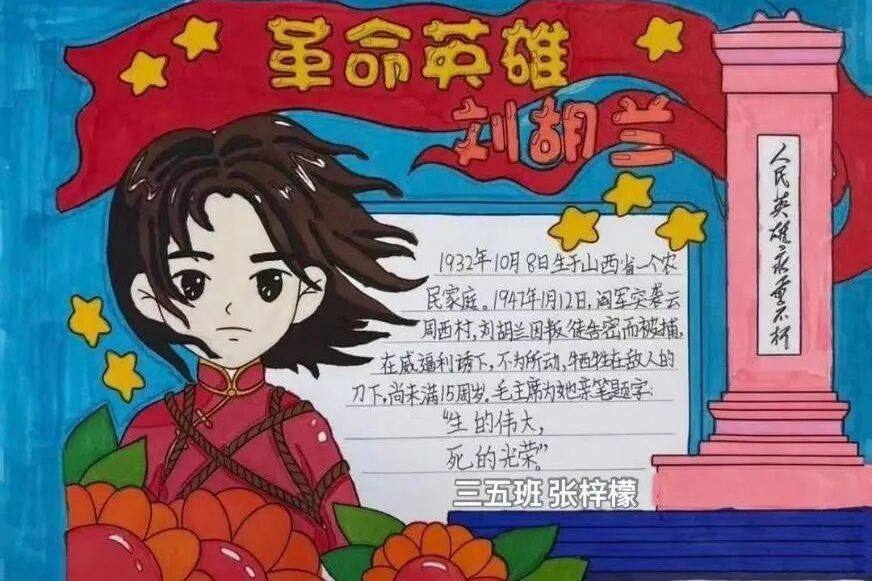 革命英雄
刘胡兰
1932年10月8日生于山西省一个农
民家庭。1947年1月12日,阎军突袭云
周西村,刘胡兰因叛徒告密而被捕,
在威逼利诱下,不为所动,牺牲在敌人的
刀下,尚未满15周岁。毛主席为她亲笔题字:
“生的伟大,
死的光荣。”
人民英雄永垂不朽
三五班 张梓檬